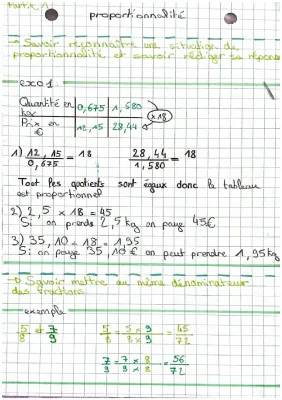 Partie 1
proportionnalité
Savoir reconnaître une situation de
proportionnalité et savoir rédiger sa réponse
exo 1
Quantité en kg 0,675 1,580
Prix en € 12,15 28,44 ×18
1) 12,15/0,675 = 18 28,44/1,580 = 18
Tout les quotients sont égaux donc le tableau
est proportionnel
2) 2,5 × 18 = 45
Si on prends 2,5 kg on paye 45€
3) 35,10 ÷ 18 = 1,95
Si on paye 35,10 € on peut prendre 1,95 kg
Savoir mettre au même dénominateur
des fractions
exemple
5/8 et 7/9 5/8 = 5 × 9/8 × 9 = 45/72
7/9 = 7 × 8/9 × 8 = 56/72